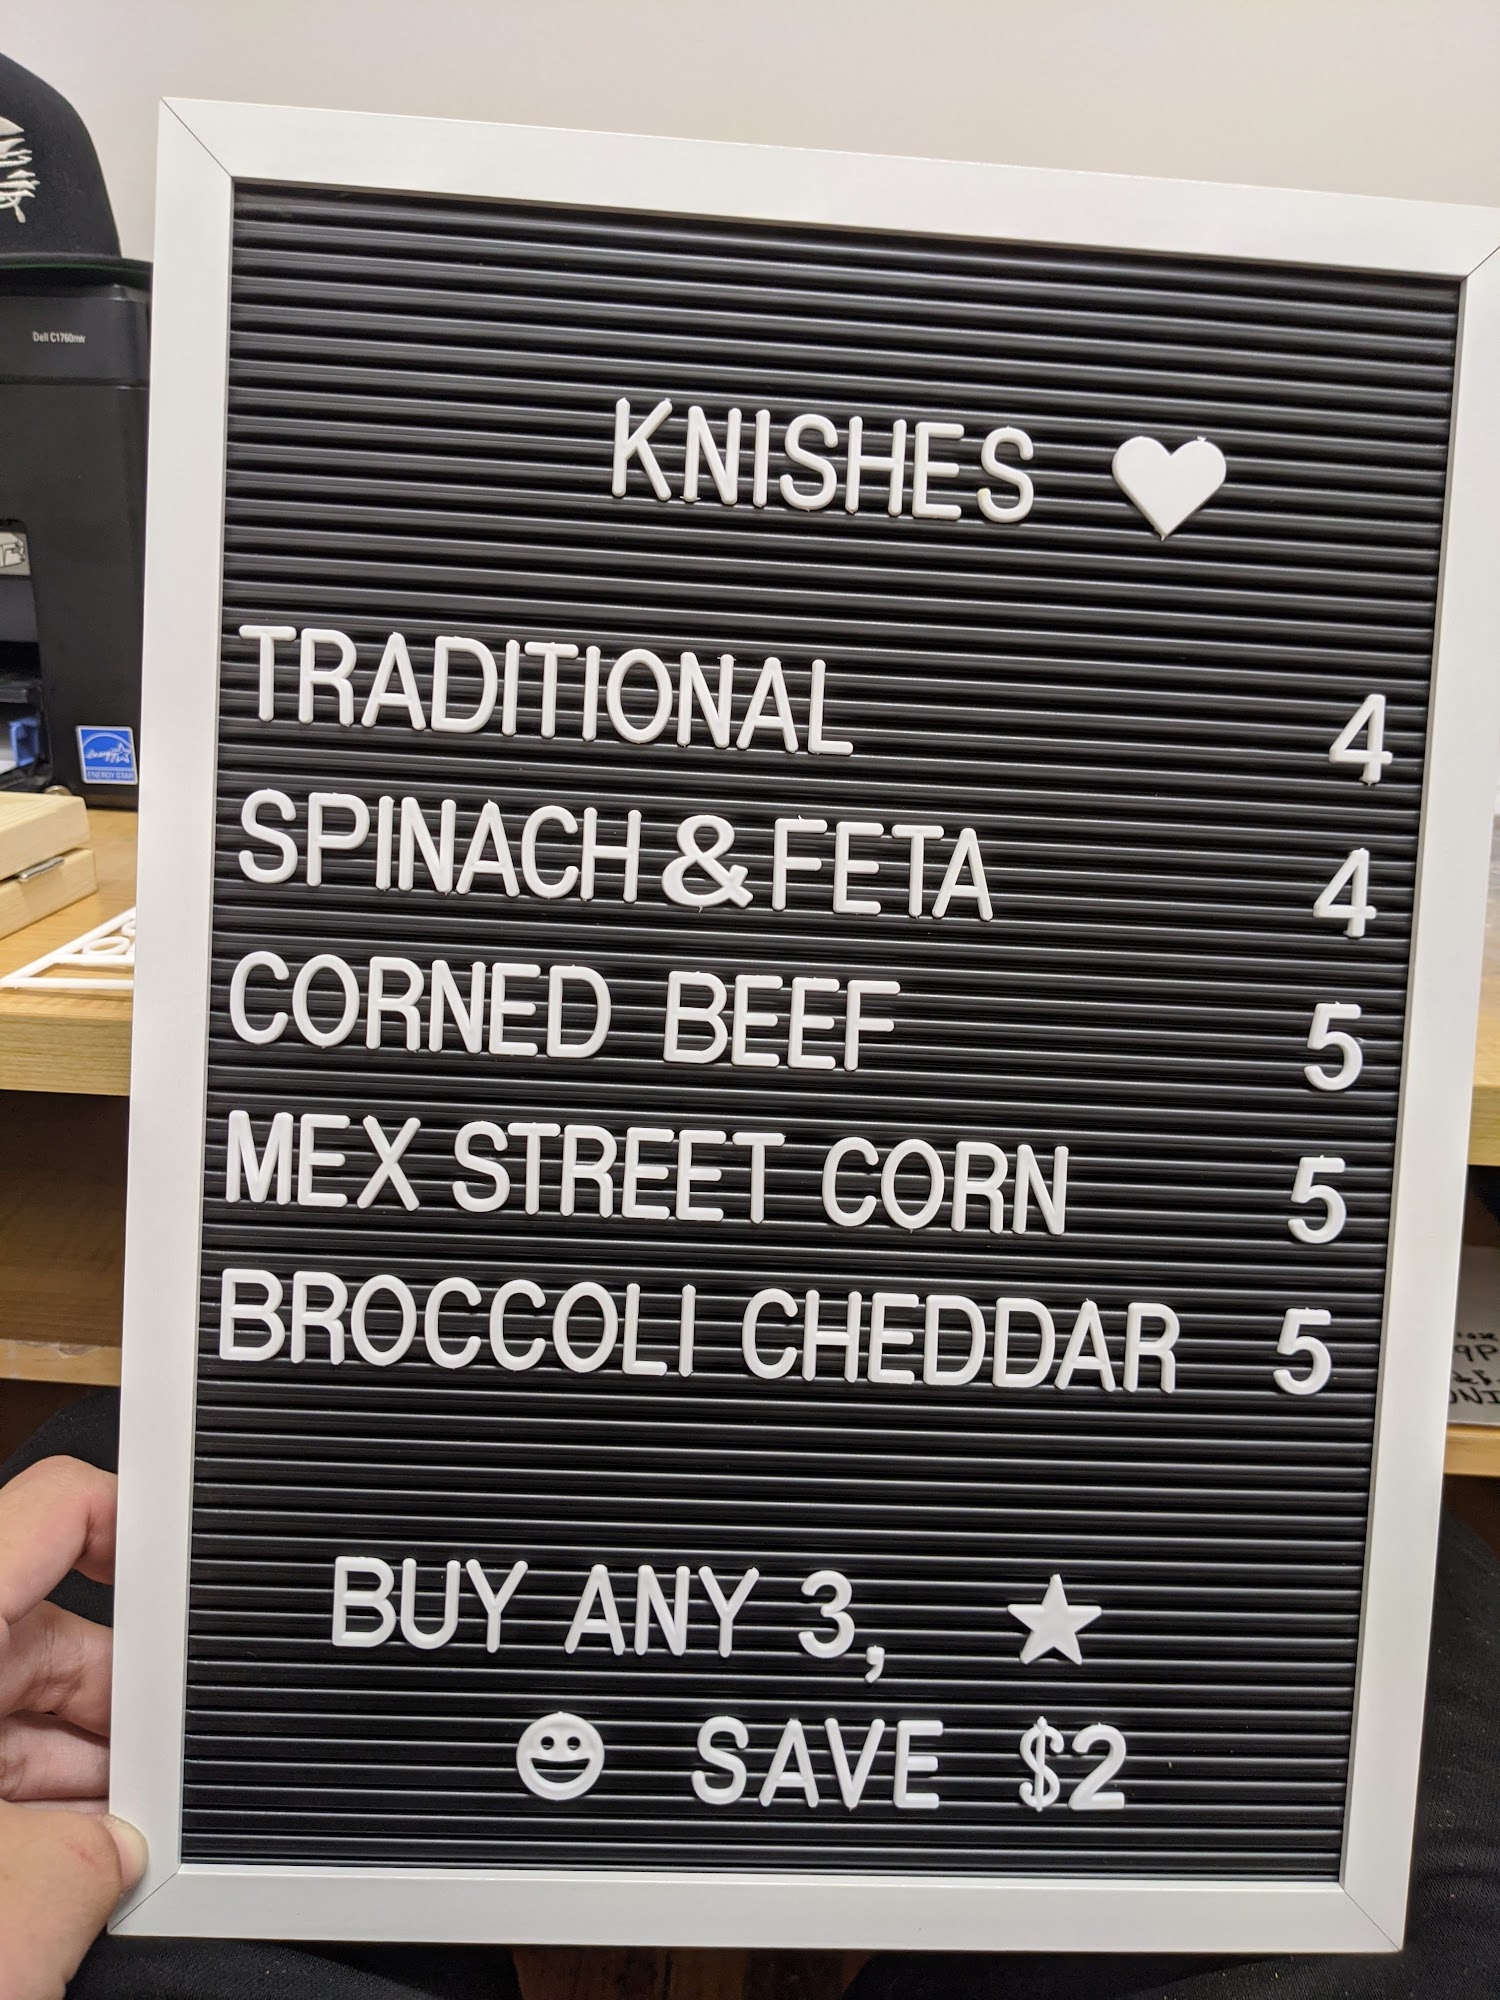 KNISHES ♥
TRADITIONAL 4
SPINACH & FETA 4
CORNED BEEF 5
MEX STREET CORN 5
BROCCOLI CHEDDAR 5
BUY ANY 3, ★
😀 SAVE $2
Dell C1760nw
energy
ENERGY STAR